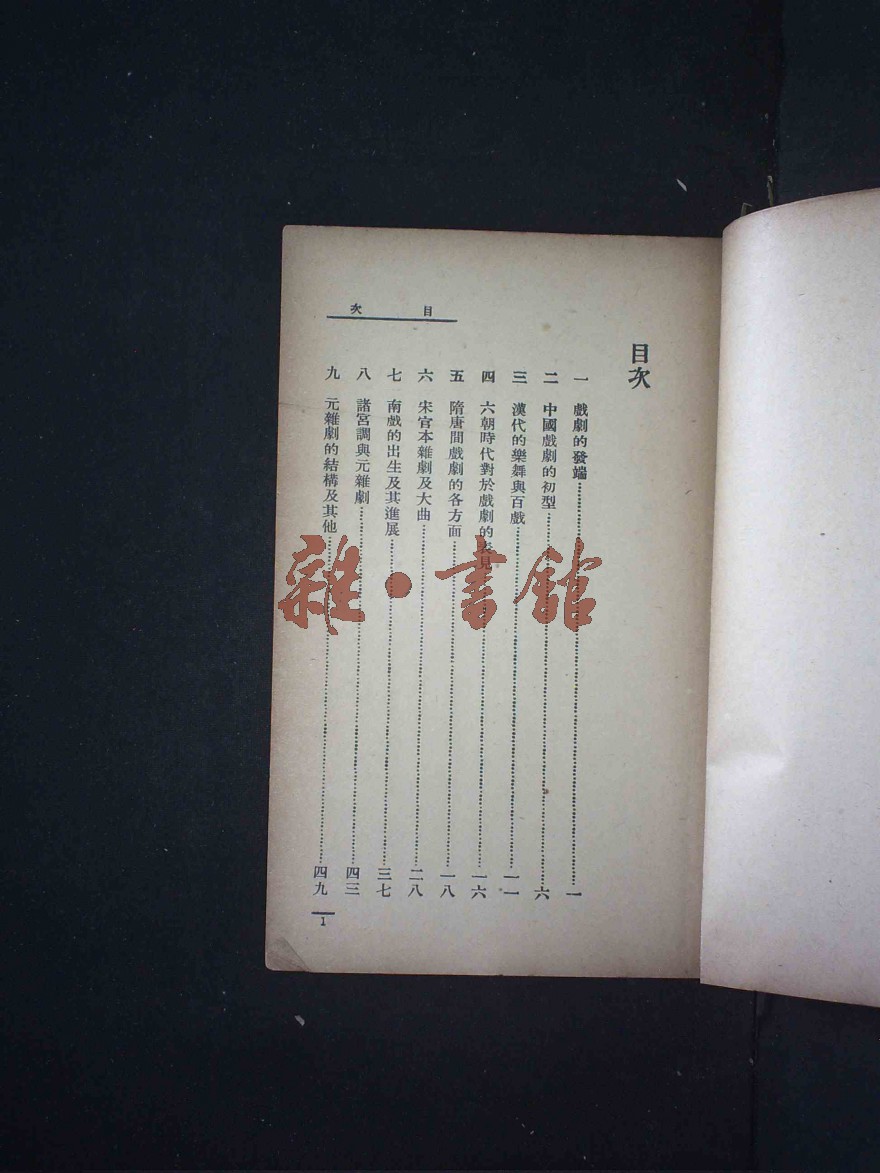 目次
目次
一 戲劇的發端 一
二 中國戲劇的初型 六
三 漢代的樂舞與百戲 一一
四 六朝時代對於戲劇的表見 一六
五 隋唐間戲劇的各方面 一八
六 宋官本雜劇及大曲 二八
七 南戲的出生及其進展 三七
八 諸宮調與元雜劇 四三
九 元雜劇的結構及其他 四九
1
雜·書館